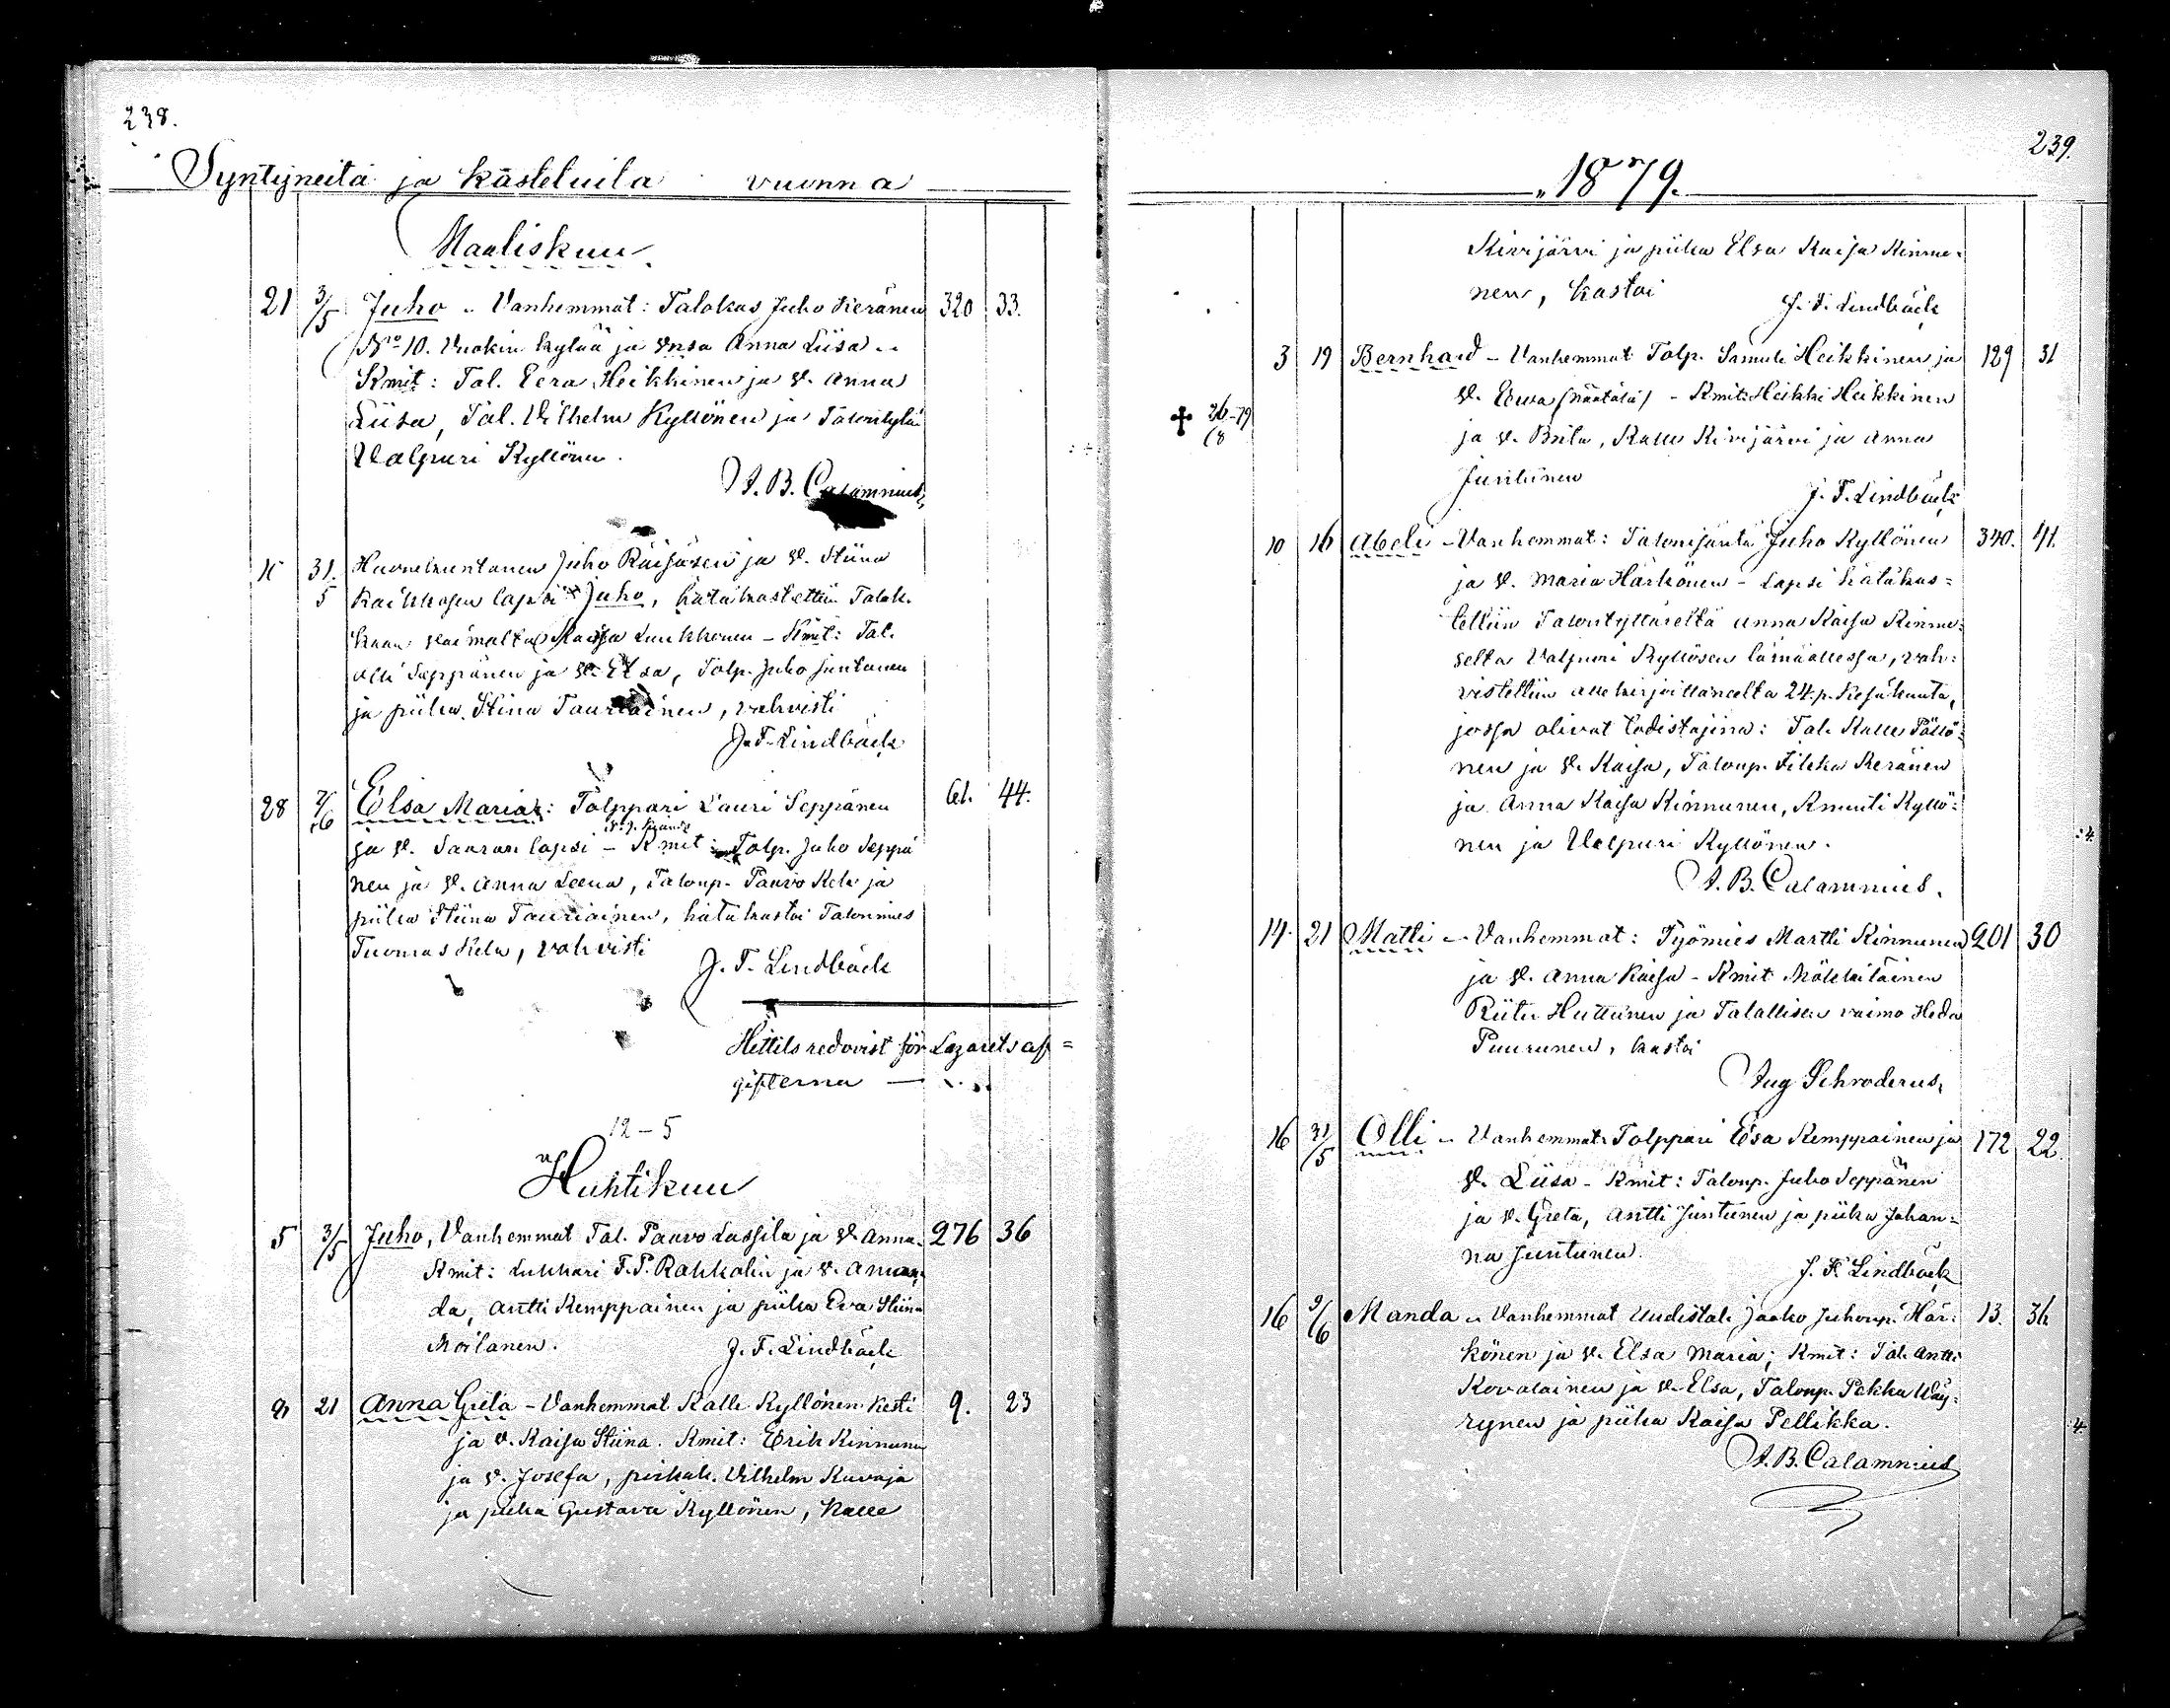 238.
Syntyneitä ja kästeluita vuonna
Maaliskuu
21 3/5 Juho .. Vanhemmat: Talokas Juho Keränen 320 33.
No 10. Vuokin kylää ja Vnsa Anna Liisa ..
Kmit: Tal. Eera Heikkinen ja V. Anna
Liisa, Tal. Vilhelm Kyllönen ja Talontytär
Valpuri Kyllönen.
A. B. Calamnius
31. Huonekuntanen Juho Räisäsen ja V. Stiina
5 Kaikkosen lapsi Juho, hätäkastettiin Talok.
Kaisa Luukkonen - Kmit: Tal.
Olli Seppänen ja V. Elsa, Tolp. Juho Juntunen
ja piika Stina Tauriainen, vahvisti
J. F. Lindbäck
28 2/6 Elsa Maria: Tolppari Lauri Seppänen 61. 44.
ja V. Saaran lapsi - Kmit: Tolp. Juho Seppä
nen ja V. Anna Leena, Taloup. Paavo Kela ja
piika Stiina Tauriainen, hätäkastoi Talonmies
Tuomas Kela, vahvisti
J. F. Lindbäck
Hittils redovist för Lazarets af=
gifterna —
12 - 5
Huhtikuu
5 3/5 Juho, Vanhemmat Tal. Paavo Lassila ja V. Anna. 276 36
Kmit: Lukkari F. P. Rahkolin ja V. Aman
da, Antti Kemppainen ja piika Eva Stiina
Moilanen.
J. F. Lindbäck
9 21 Anna Greta - Vanhemmat Kalle Kyllönen Kesti 9. 23
ja V. Kaisa Stiina. Kmit: Erik Kinnunen
ja V. Josefa, Vilhelm Kuvaja
ja piika Gustava Kyllönen, Kalle
239.
1879.
Kivijärvi ja piika Elsa Kaisa Kinnu=
nen, kastoi
J. F. Lindbäck
3 19 Bernhard - Vanhemmat Tolp. Samuli Heikkinen ja 129 31
V. Eeva (Määtätä) - Kmit: Heikki Heikkinen
26-79
ja V. Brita, Kalle Kivijärvi ja Anna
Juntunen
J. F. Lindbäck
10 16 Abeli - Vanhemmat: Talonisäntä Juho Kyllönen 340. 41.
ja V. Maria Härkönen - Lapsi hätäkas=
tettiin Talontyttäreltä Anna Kaisa Kinnu=
selta Valpuri Kyllösen läsnäollessa, vah=
vistettiin allekirjoittaneelta 24. p. Kesäkuuta,
jossa olivat todistajina: Tal. Kalle Pöllö=
nen ja V. Kaisa, Taloup. Keränen
ja Anna Kaisa Kinnunen, Knuuti Kyllö=
nen ja Valpuri Kyllönen.
A. B. Calamnius.
14. 21 Matti - Vanhemmat: Työmies Martti Kinnunen 201 30
ja V. Anna Kaisa - Kmit Mökkiläinen
Riitu Huttunen ja Talallisen vaimo Heda
Puurunen, kastoi
Aug Schroderus,
16 31/5 Olli - Vanhemmat: Tolppari Esa Kemppainen ja 172 22.
V. Liisa - Kmit: Taloup. Juho Seppänen
ja V. Greta, Antti Juntunen ja piika Johan=
na Juntunen.
J. F. Lindbäck
16 9/6 Manda - Vanhemmat Uudistal. Jaako Juhonp. Här= 13. 36
könen ja V. Elsa Maria; Kmit: Tal. Antti
Kovalainen ja V. Elsa, Taloup. Pekka Väy=
rynen ja piika Kaisa Pellikka.
A. B. Calamnius